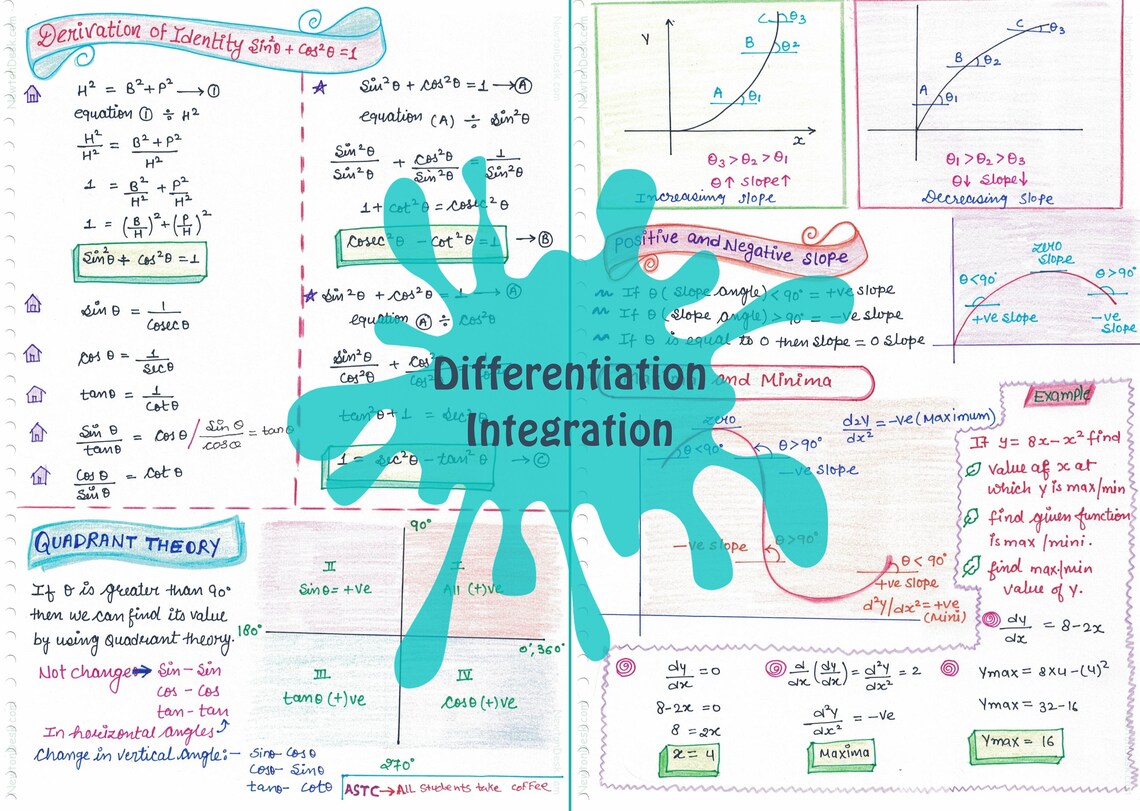 Derivation of Identity Sin²θ + Cos²θ = 1
H² = B² + P² → ①
equation ① ÷ H²
H²/H² = B² + P²/H²
1 = B²/H² + P²/H²
1 = (B/H)² + (P/H)²
Sin²θ + Cos²θ = 1
Sin θ = 1/Cosec θ
Cos θ = 1/Sec θ
tan θ = 1/Cot θ
Sin θ/tan θ = Cos θ / Sin θ/Cos θ = tan θ
Cos θ/Sin θ = Cot θ
Sin²θ + Cos²θ = 1 → Ⓐ
equation (A) ÷ Sin²θ
Sin²θ/Sin²θ + Cos²θ/Sin²θ = 1/Sin²θ
1 + cot²θ = Cosec²θ
Cosec²θ - Cot²θ = 1 → Ⓑ
Sin²θ + Cos²θ = 1 → Ⓐ
equation Ⓐ ÷ Cos²θ
Sin²θ/Cos²θ +
tan²θ + 1 = Sec²θ
1 = Sec²θ - tan²θ → Ⓒ
QUADRANT THEORY
If θ is greater than 90°
then we can find its value
by using Quadrant theory.
Not change → Sin - Sin
Cos - Cos
tan - tan
In horizontal angles
Change in vertical Angle:-
Sinθ - Cosθ
Cosθ - Sinθ
tanθ - Cotθ
90°
II
Sinθ = +ve
I
All (+)ve
180°
0°, 360°
III
tanθ (+)ve
IV
Cosθ (+)ve
270°
ASTC → All Students take coffee
Differentiation
Integration
Y
C θ3
B θ2
A θ1
x
θ3 > θ2 > θ1
θ↑ Slope↑
Increasing slope
C θ3
B θ2
A θ1
θ1 > θ2 > θ3
θ↓ Slope↓
Decreasing Slope
Positive and Negative Slope
If θ (Slope angle) < 90° = +ve Slope
If θ (Slope angle) > 90° = -ve Slope
If θ is equal to 0 then slope = 0 Slope
zero
Slope
θ < 90°
θ > 90°
+ve slope
-ve
Slope
and Minima
zero
d²y/dx² = -ve (Maximum)
θ < 90°
θ > 90°
-ve slope
-ve slope
θ > 90°
θ < 90°
+ve slope
d²y/dx² = +ve
(Mini)
Example
If y = 8x - x² find
value of x at
which y is max/min
find given function
is max / mini.
find max/min
value of y.
dy/dx = 8 - 2x
dy/dx = 0
8 - 2x = 0
8 = 2x
x = 4
d/dx (dy/dx) = d²y/dx² = 2
d²y/dx² = -ve
Maxima
Ymax = 8x4 - (4)²
Ymax = 32 - 16
Ymax = 16